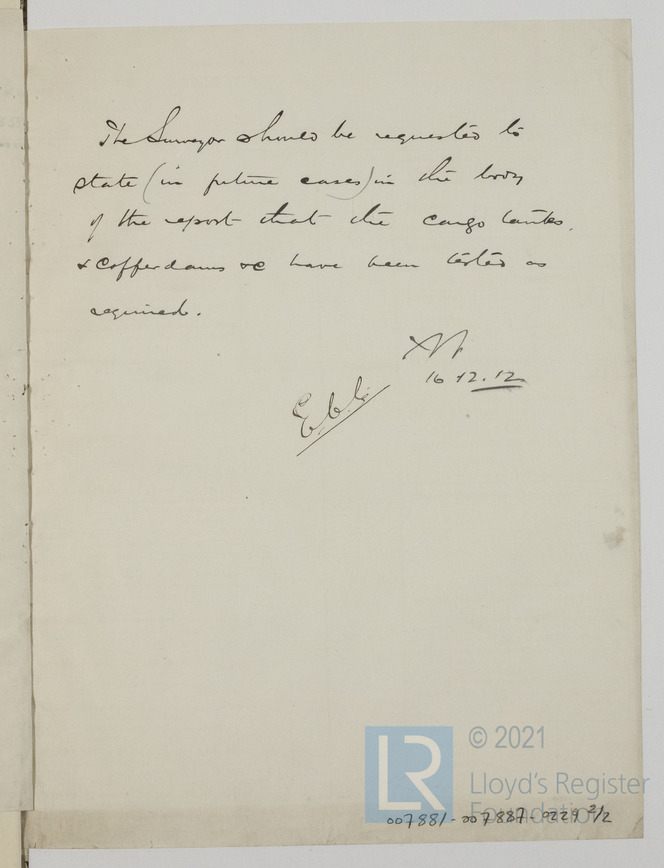 The Surveyor should be requested to
state (in future cases) in the body
of the report that the cargo tanks.
& Cofferdams &c have been tested as
required.
16.12.12
© 2021
LR
Lloyd's Register
Foundation
007881-007887-0229 2/2